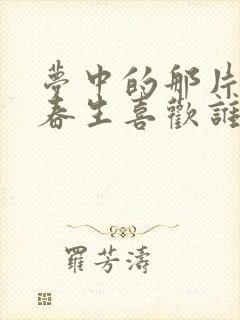 夢中的那片
春生喜歡誰
羅芳濤